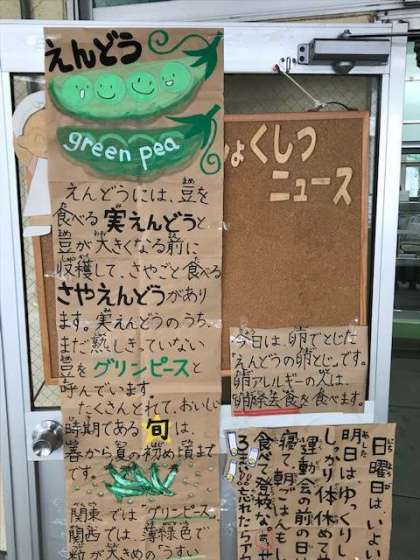 えんどう
green pea
えんどうには、豆を
食べる実えんどうと
豆が大きくなる前に
収穫して、さやごと食べる
さやえんどうがあり
ます。実えんどうのうち、
まだ熟しきっていない
豆をグリンピースと
呼んでいます。
たくさんとれて、おいしい
時期である旬は、
春から夏の初め頃まで
です。
関東では"グリンピース"
関西では 薄緑色で
粒が大きめのうすい
ょくしつ
ニュース
今日は、卵でとじた
「えんどうの卵とじ」です。
卵アレルギーの人は、
卵除去食を食べます。
日曜日はいよ
明日はゆっくり
しっかり体休めて
運動会の前の日は
寝て、朝ごはんも
食べて登校な